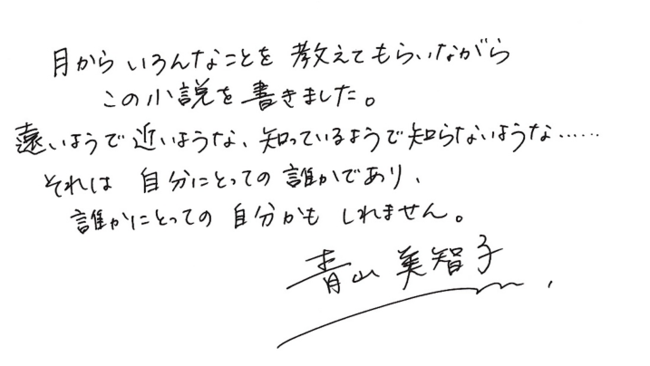 月から いろんなことを 教えてもらいながら
この小説を 書きました。
遠いようで 近いような、知っているようで知らないような……
それは 自分にとっての 誰かであり、
誰かにとっての 自分かも しれません。
青山 美智子